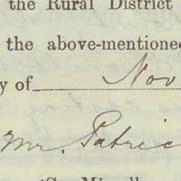 the Rural District
the above-mentioned
y of Nov
Mr. Patric